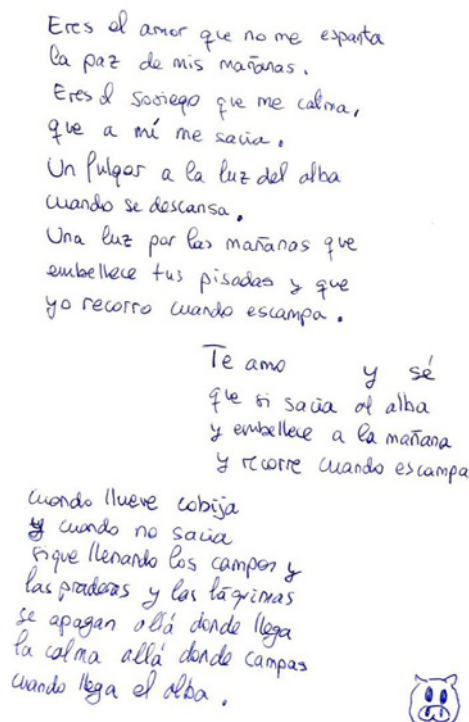 Eres el amor que no me espanta
la paz de mis mañanas.
Eres el sosiego que me calma,
que a mí me sacia.
Un fulgor a la luz del alba
cuando se descansa.
Una luz por las mañanas que
embellece tus pisadas y que
yo recorro cuando escampa.
Te amo y sé
que si sacia al alba
y embellece a la mañana
y recorre cuando escampa
cuando llueve cobija
y cuando no sacia
sigue llenando los campos y
las praderas y las lágrimas
se apagan allá donde llega
la calma allá donde campas
cuando llega el alba.